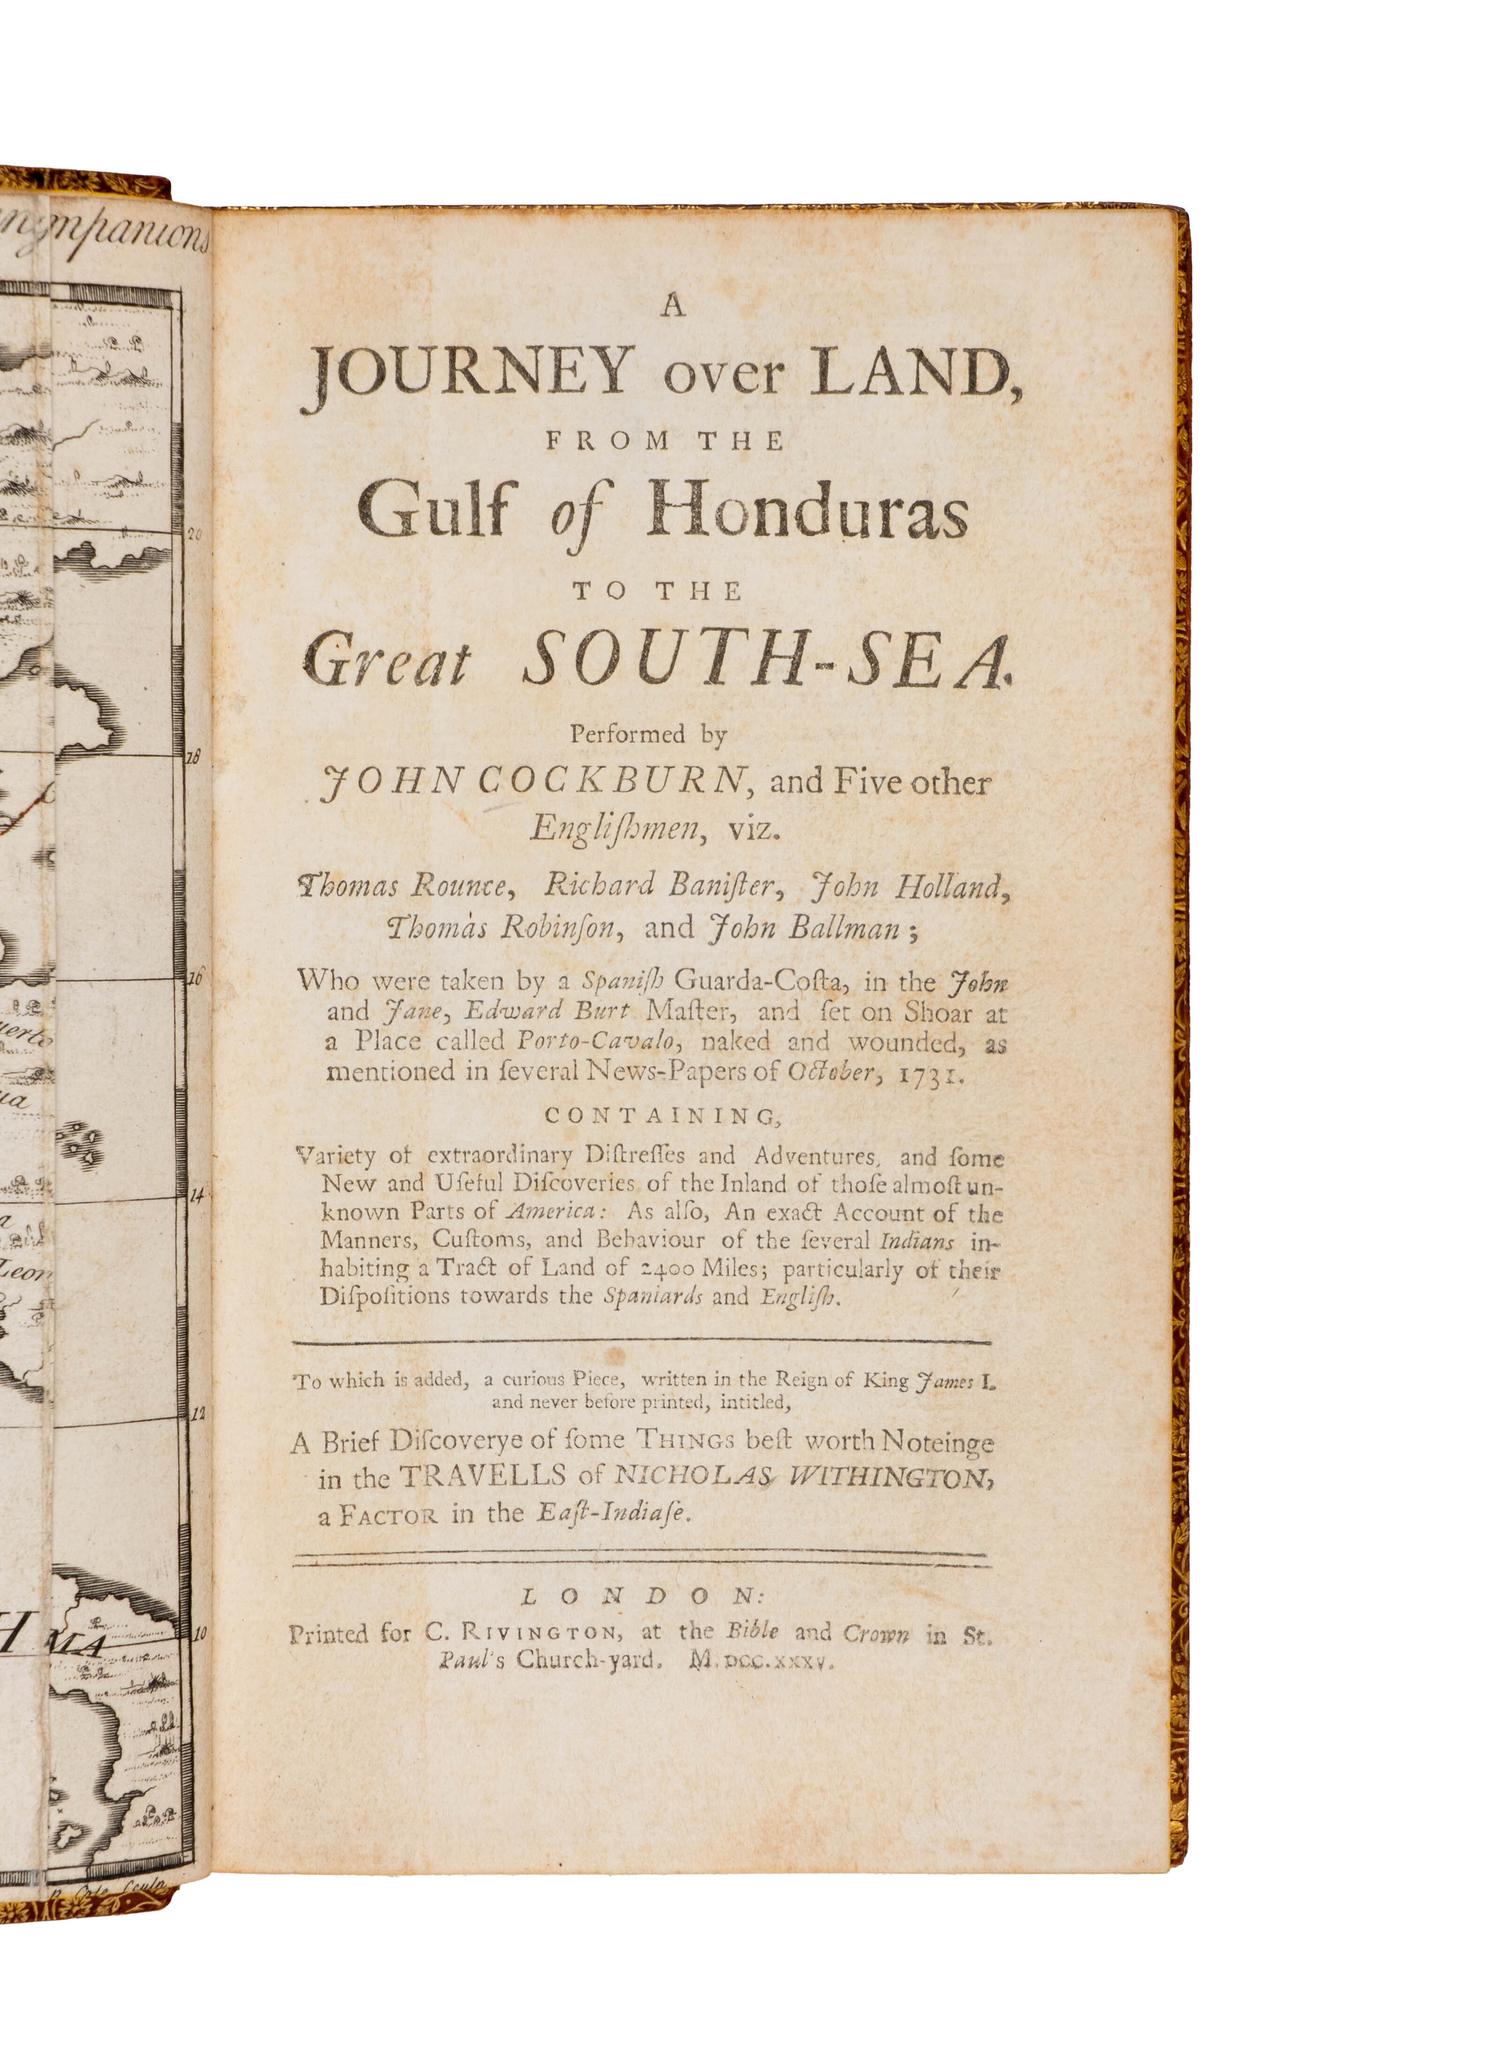 mpanions
20
18
16
uerto
ua
14
a
Leon
12
10
H
MA
Sculp
A
JOURNEY over LAND,
FROM THE
Gulf of Honduras
TO THE
Great SOUTH-SEA.
Performed by
JOHN COCKBURN, and Five other
Engliſhmen, viz.
Thomas Rounce, Richard Baniſter, John Holland,
Thomas Robinſon, and John Ballman;
Who were taken by a Spaniſh Guarda-Coſta, in the John
and Jane, Edward Burt Maſter, and ſet on Shoar at
a Place called Porto-Cavalo, naked and wounded, as
mentioned in ſeveral News-Papers of October, 1731.
CONTAINING,
Variety of extraordinary Diſtreſſes and Adventures, and ſome
New and Uſeful Diſcoveries of the Inland of thoſe almoſt un-
known Parts of America: As alſo, An exact Account of the
Manners, Cuſtoms, and Behaviour of the ſeveral Indians in-
habiting a Tract of Land of 2400 Miles; particularly of their
Diſpoſitions towards the Spaniards and Engliſh.
To which is added, a curious Piece, written in the Reign of King James I.
and never before printed, intitled,
A Brief Diſcoverye of ſome THINGS beſt worth Noteinge
in the TRAVELLS of NICHOLAS WITHINGTON,
a FACTOR in the Eaſt-Indiaſe.
LONDON:
Printed for C. RIVINGTON, at the Bible and Crown in St.
Paul's Church-yard. M.DCC.XXXV.